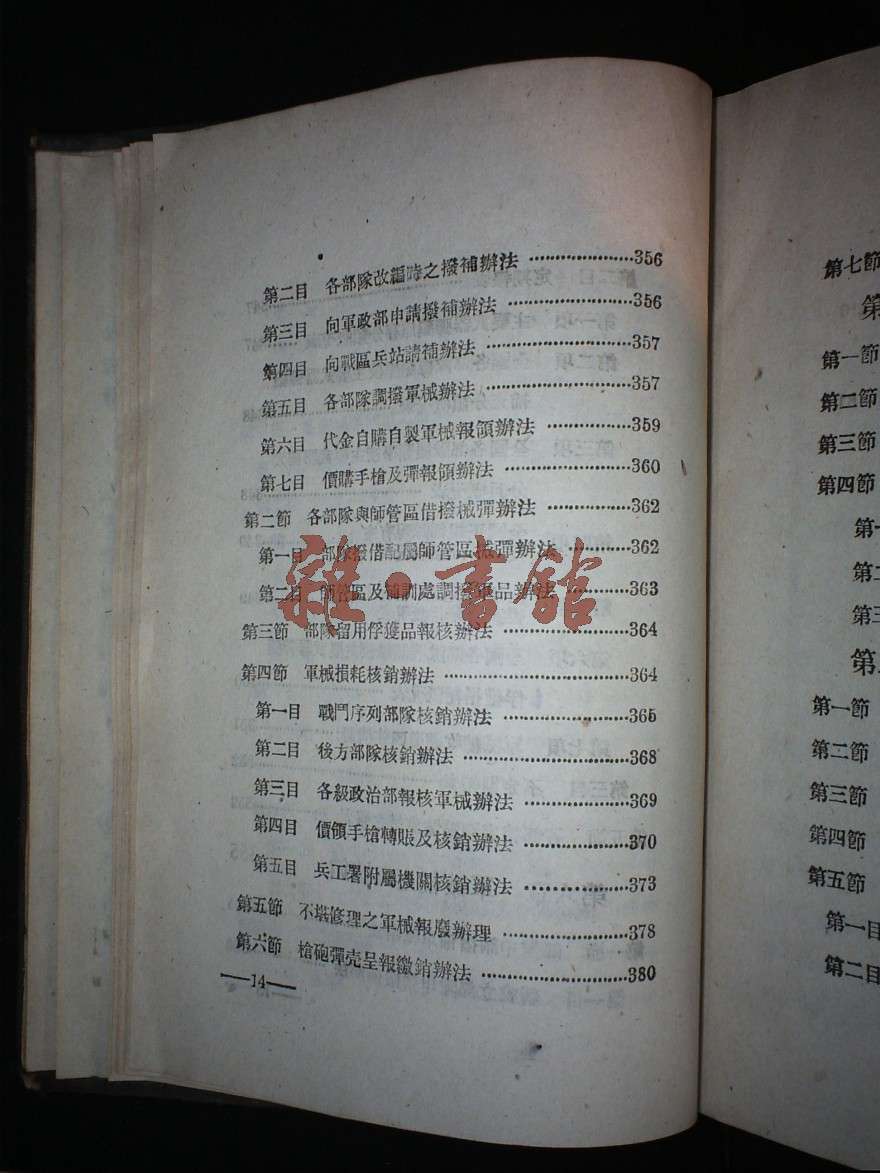 第二目 各部隊改編時之撥補辦法 ………………356
第三目 向軍政部申請撥補辦法 ………………356
第四目 向戰區兵站請補辦法 ………………357
第五目 各部隊調撥軍械辦法 ………………357
第六目 代金自購自製軍械報領辦法 ………………359
第七目 價購手槍及彈報領辦法 ………………360
第二節 各部隊與師管區借撥械彈辦法 ………………362
第一目 部隊撥借配屬師管區械彈辦法 ………………362
第二目 師管區及補訓處調撥軍品辦法 ………………363
第三節 部隊留用俘獲品報核辦法 ………………364
第四節 軍械損耗核銷辦法 ………………364
第一目 戰鬥序列部隊核銷辦法 ………………365
第二目 後方部隊核銷辦法 ………………368
第三目 各級政治部報核軍械辦法 ………………369
第四目 價領手槍轉賬及核銷辦法 ………………370
第五目 兵工署附屬機關核銷辦法 ………………373
第五節 不堪修理之軍械報廢辦理 ………………378
第六節 槍砲彈壳呈報繳銷辦法 ………………380
—14—
雜·書館
第七節
第
第一節
第二節
第三節
第四節
第一
第二
第三
第
第一節
第二節
第三節
第四節
第五節
第一目
第二目